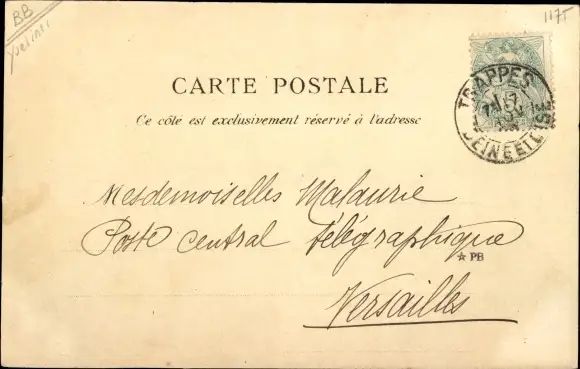 BB
Yvelines
1175
CARTE POSTALE
Ce côté est exclusivement réservé à l'adresse
TRAPPES
SEINE ET OISE
Mesdemoiselles Malaurie
Poste central télégraphique
PB
Versailles